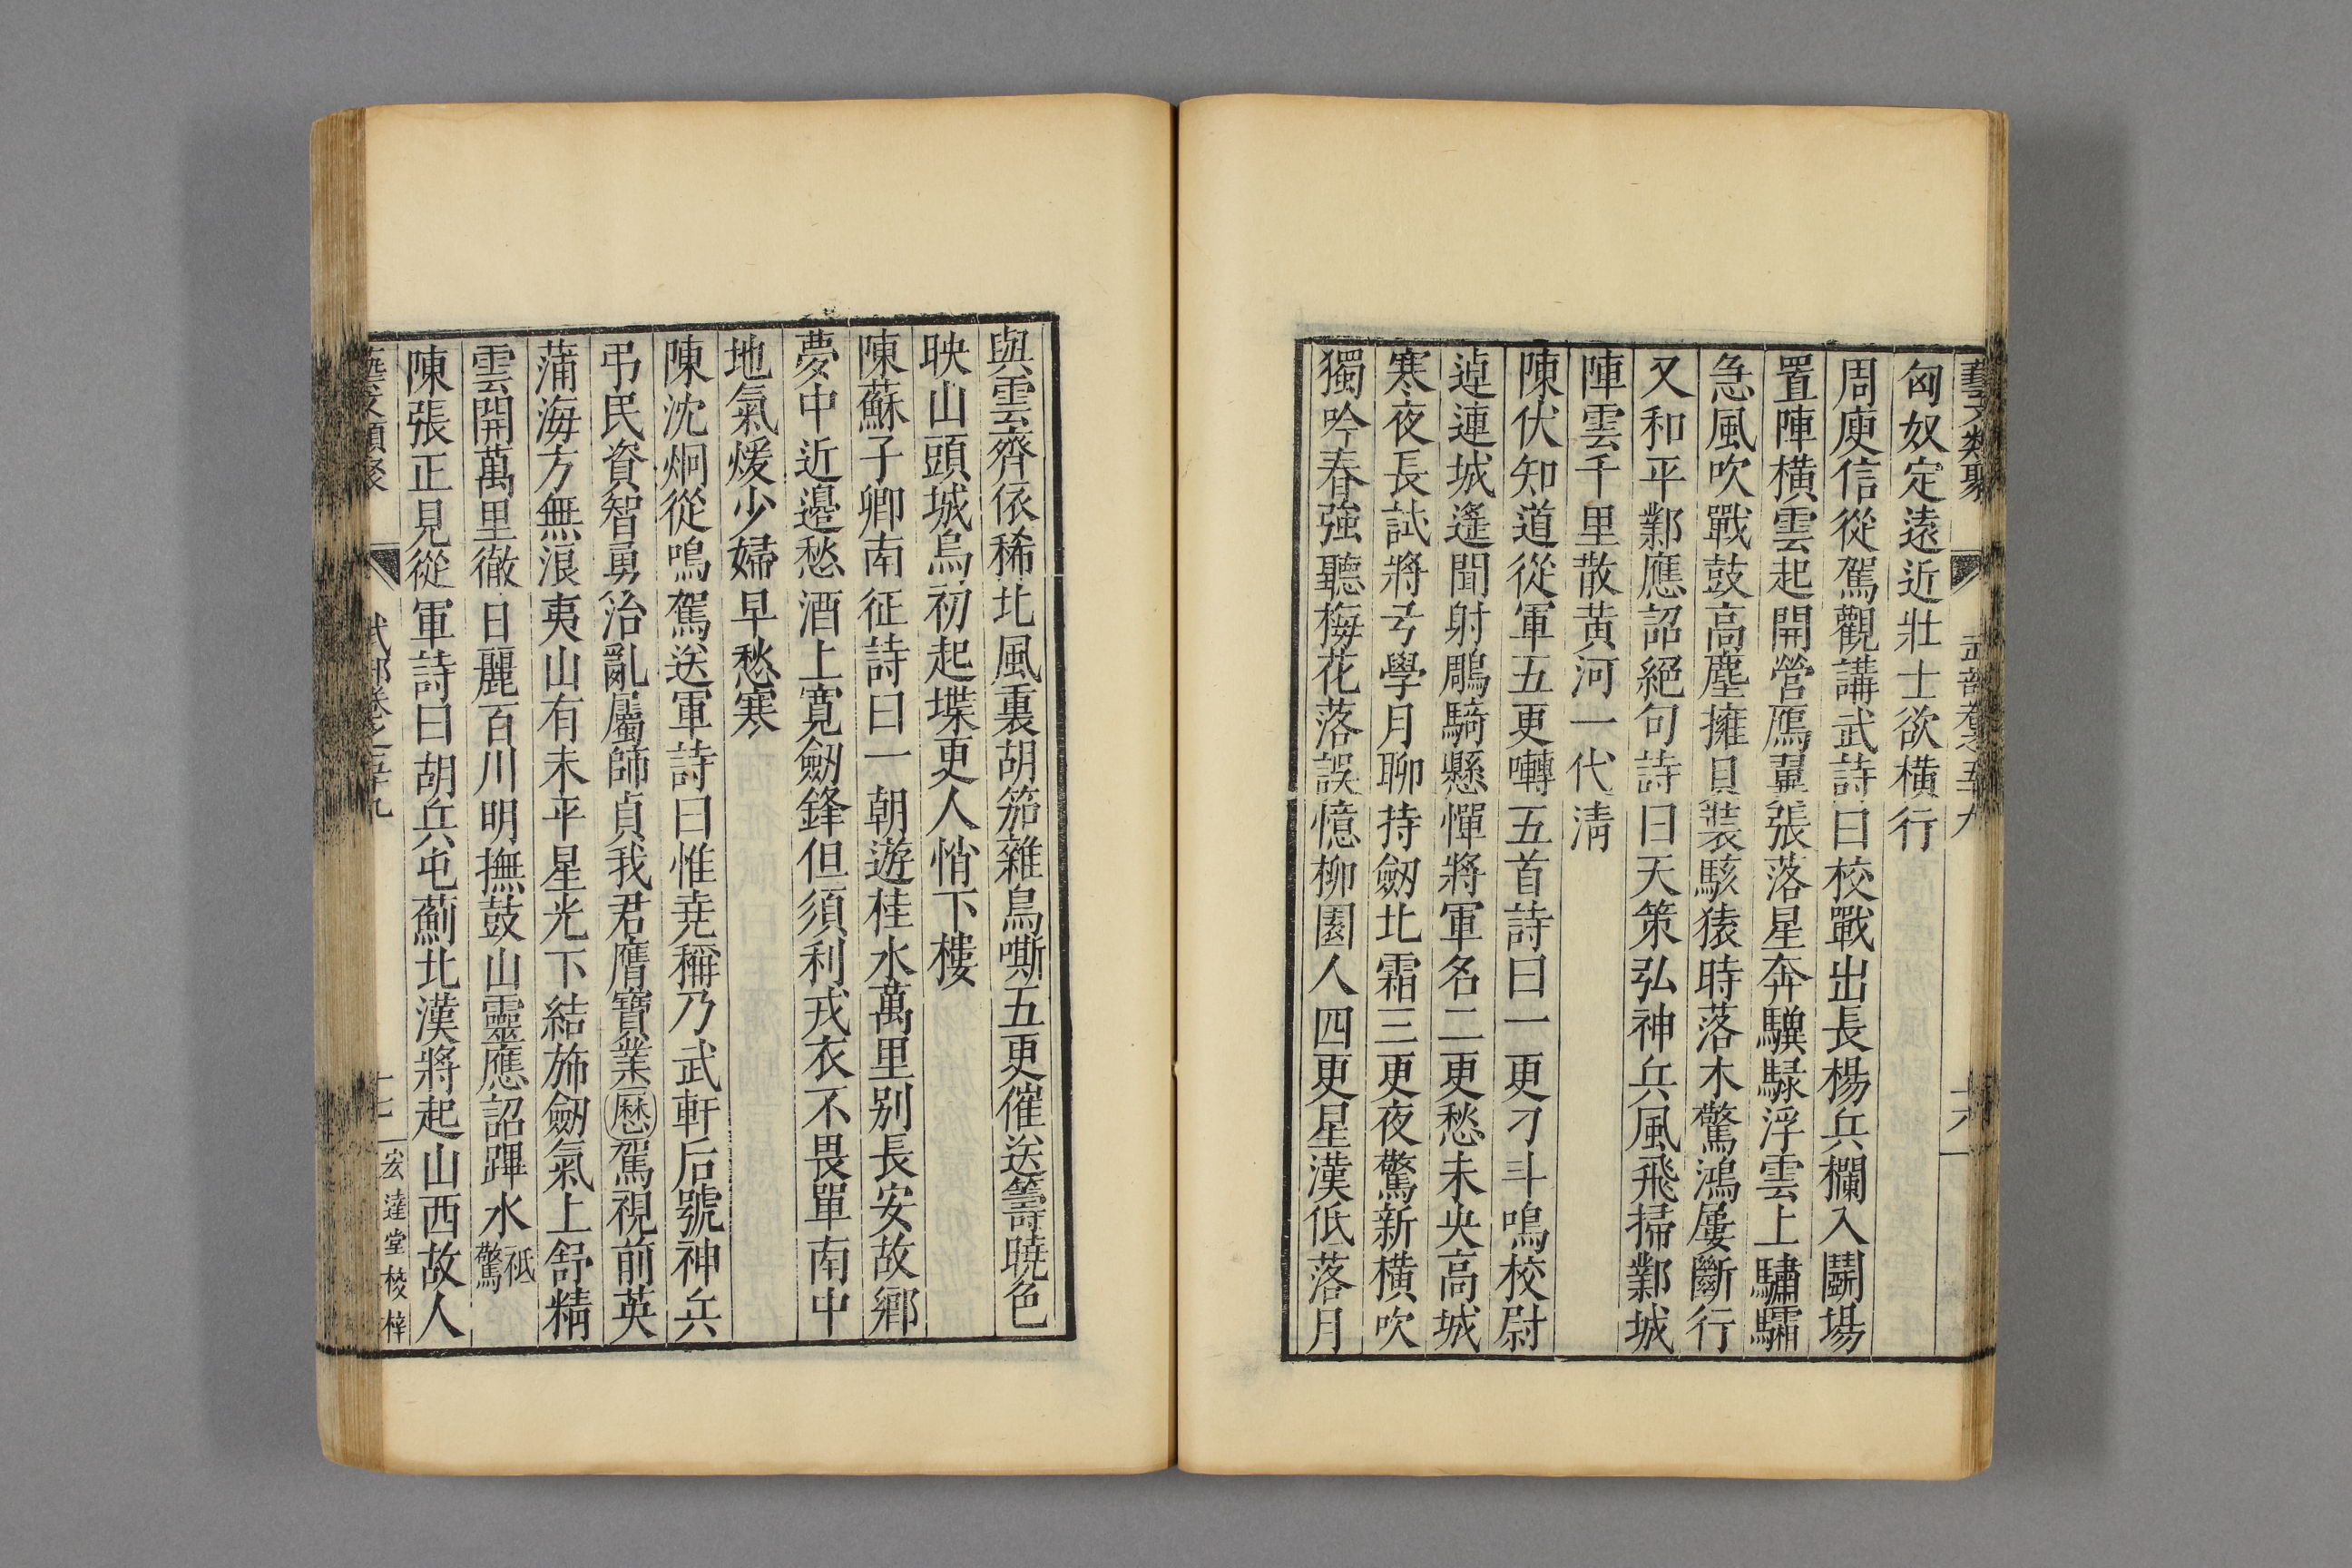 藝文類聚 武部卷之五十九 十六
匈奴定遠近壯士欲橫行
周庾信從駕觀講武詩曰校戰出長楊兵欄入鬬場
置陣橫雲起開營鴈翼張落星奔驥騄浮雲上驌驦
急風吹戰鼓高塵擁貝裝駭猿時落木驚鴻屢斷行
又和平鄴應詔絕句詩曰天策弘神兵風飛掃鄴城
陣雲千里散黄河一代清
陳伏知道從軍五更囀五首詩曰一更刁斗鳴校尉
逴連城遙聞射鵰騎懸憚將軍名二更愁未央高城
寒夜長試將弓學月聊持劒北霜三更夜驚新橫吹
獨吟春強聽梅花落誤憶柳園人四更星漢低落月
與雲齊依稀北風裏胡笳雜鳥嘶五更催送籌曉色
映山頭城烏初起堞更人悄下樓
陳蘇子卿南征詩曰一朝遊桂水萬里别長安故鄉
夢中近邉愁酒上寛劒鋒但須利戎衣不畏單南中
地氣煖少婦早愁寒
陳沈炯從鳴駕送軍詩曰惟堯稱乃武軒后號神兵
弔民資智勇治亂屬師貞我君膺寶業歴駕視前英
蒲海方無浪夷山有未平星光下結斾劒氣上舒精
雲開萬里徹日麗百川明撫鼓山靈應詔蹕水祇驚
陳張正見從軍詩曰胡兵屯薊北漢將起山西故人
藝文類聚 武部卷之五十九 十七 宏達堂校梓